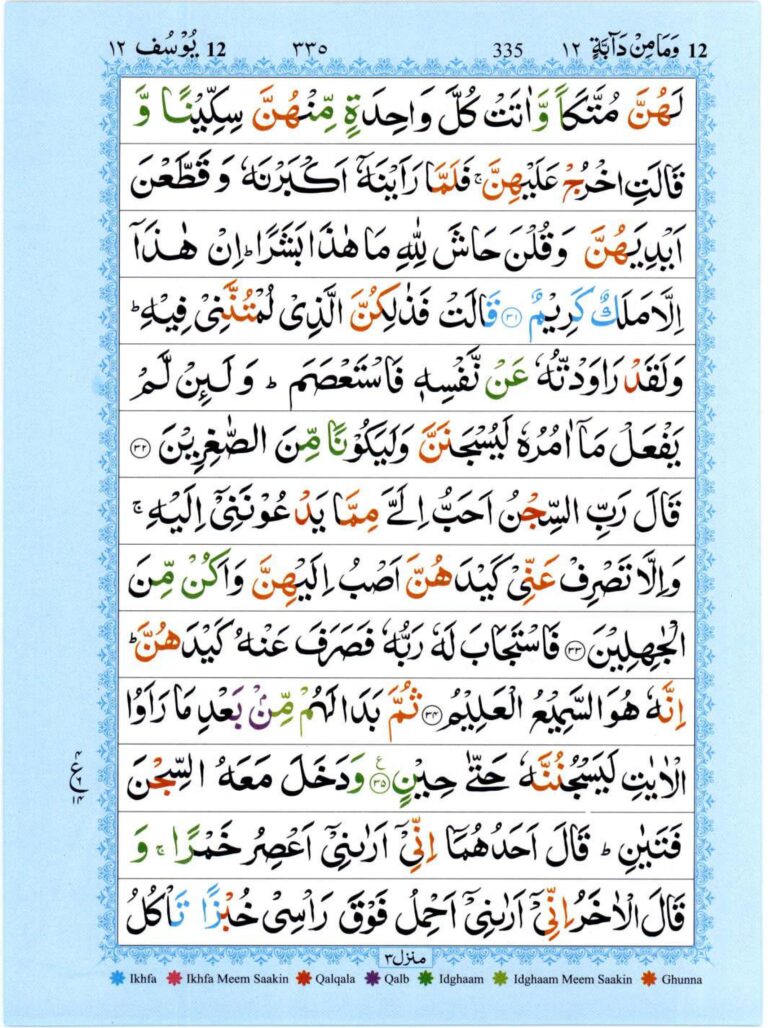 12 وَمَا مِنْ دَآبَّةٍ ١٢ 335 ٣٣٥ 12 يُوْسُف ١٢
لَهُنَّ مُتَّكَاً وَّاٰتَتْ كُلَّ وَاحِدَةٍ مِّنْهُنَّ سِكِّيْنًا وَّ
قَالَتِ اخْرُجْ عَلَيْهِنَّ ۚ فَلَمَّا رَاَيْنَهٗۤ اَكْبَرْنَهٗ وَ قَطَّعْنَ
اَيْدِيَهُنَّ وَقُلْنَ حَاشَ لِلّٰهِ مَا هٰذَا بَشَرًا ؕ اِنْ هٰذَاۤ
اِلَّا مَلَكٌ كَرِيْمٌ ﴿٣١﴾ قَالَتْ فَذٰلِكُنَّ الَّذِىْ لُمْتُنَّنِىْ فِيْهِ ؕ
وَلَقَدْ رَاوَدْتُّهٗ عَنْ نَّفْسِهٖ فَاسْتَعْصَمَ ؕ وَ لَىِٕنْ لَّمْ
يَفْعَلْ مَاۤ اٰمُرُهٗ لَيُسْجَنَنَّ وَلَيَكُوْنًا مِّنَ الصّٰغِرِيْنَ ﴿٣٢﴾
قَالَ رَبِّ السِّجْنُ اَحَبُّ اِلَىَّ مِمَّا يَدْعُوْنَنِىْۤ اِلَيْهِ ۚ
وَاِلَّا تَصْرِفْ عَنِّىْ كَيْدَهُنَّ اَصْبُ اِلَيْهِنَّ وَاَكُنْ مِّنَ
الْجٰهِلِيْنَ ﴿٣٣﴾ فَاسْتَجَابَ لَهٗ رَبُّهٗ فَصَرَفَ عَنْهُ كَيْدَهُنَّ ؕ
اِنَّهٗ هُوَ السَّمِيْعُ الْعَلِيْمُ ﴿٣٤﴾ ثُمَّ بَدَا لَهُمْ مِّنْۢ بَعْدِ مَا رَاَوُا
الْاٰيٰتِ لَيَسْجُنُنَّهٗ حَتّٰى حِيْنٍ ﴿٣٥﴾ وَدَخَلَ مَعَهُ السِّجْنَ
٤ ع ٦ ١٤
فَتَيٰنِ ؕ قَالَ اَحَدُهُمَاۤ اِنِّىْۤ اَرٰىنِىْۤ اَعْصِرُ خَمْرًا ۚ وَ
قَالَ الْاٰخَرُ اِنِّىْۤ اَرٰىنِىْۤ اَحْمِلُ فَوْقَ رَاْسِىْ خُبْزًا تَاْكُلُ
منزل ٣
Ikhfa Ikhfa Meem Saakin Qalqala Qalb Idghaam Idghaam Meem Saakin Ghunna